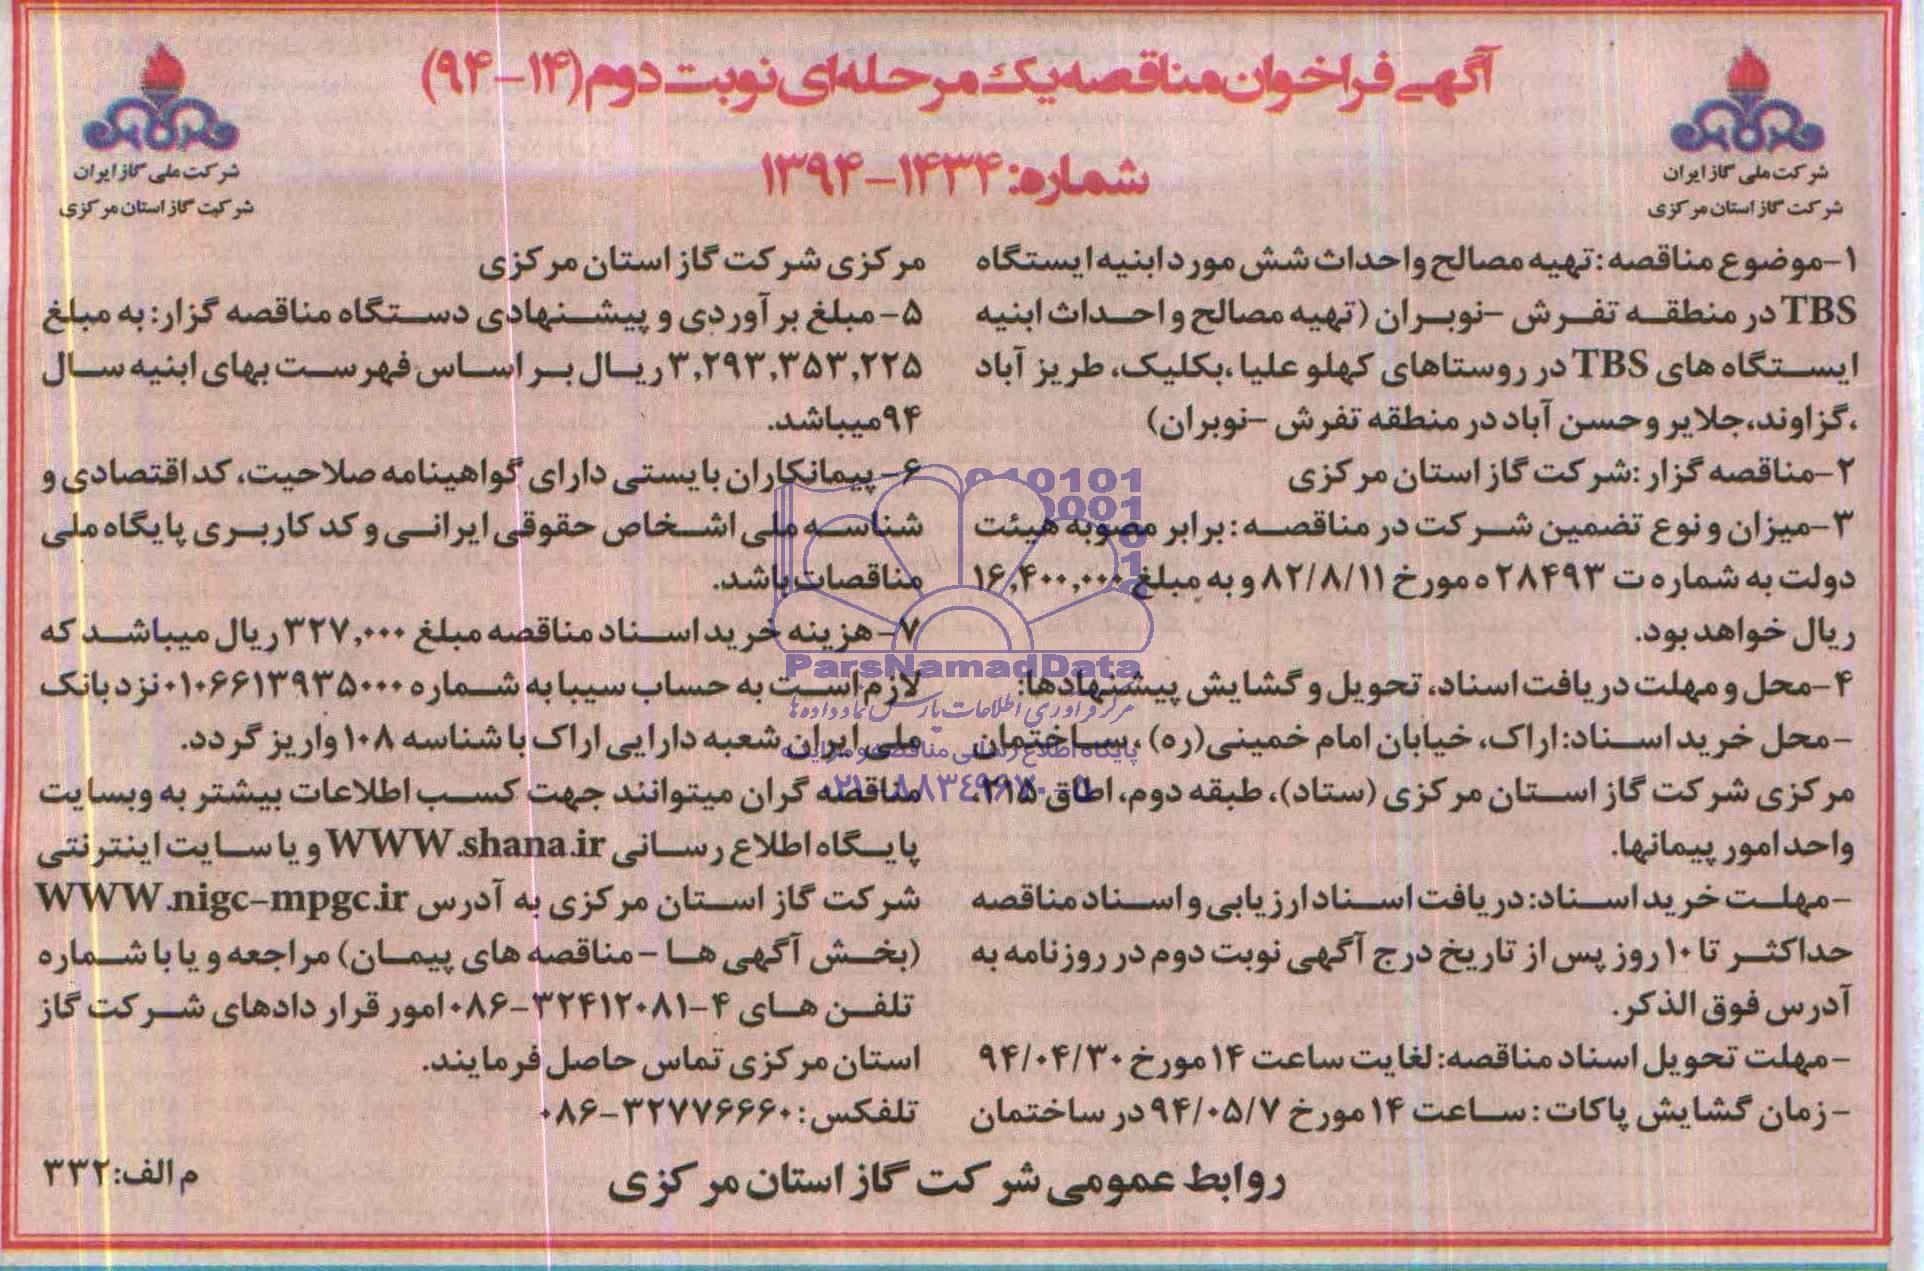 آگهی فراخوان مناقصه یک مرحله‌ای نوبت دوم (۱۴-۹۴)
شماره: ۱۴۳۴-۱۳۹۴
شرکت ملی گاز ایران
شرکت گاز استان مرکزی
شرکت ملی گاز ایران
شرکت گاز استان مرکزی
۱-موضوع مناقصه: تهیه مصالح و احداث شش مورد ابنیه ایستگاه
TBS در منطقه تفرش -نوبران (تهیه مصالح و احداث ابنیه
ایستگاه های TBS در روستاهای کهلو علیا ،بکلیک، طریز آباد
،گزاوند،جلایر و حسن آباد در منطقه تفرش -نوبران)
۲-مناقصه گزار :شرکت گاز استان مرکزی
۳-میزان و نوع تضمین شرکت در مناقصه: برابر مصوبه هیئت
دولت به شماره ت ۲۸۴۹۳ ه مورخ ۸۲/۸/۱۱ و به مبلغ ۱۶,۴۰۰,۰۰۰
ریال خواهد بود.
۴-محل و مهلت دریافت اسناد، تحویل و گشایش پیشنهادها:
-محل خرید اسناد: اراک، خیابان امام خمینی(ره) ، ساختمان
مرکزی شرکت گاز استان مرکزی (ستاد)، طبقه دوم، اطاق ۲۱۵،
واحد امور پیمانها.
-مهلت خرید اسناد: دریافت اسناد ارزیابی و اسناد مناقصه
حداکثر تا ۱۰ روز پس از تاریخ درج آگهی نوبت دوم در روزنامه به
آدرس فوق الذکر.
-مهلت تحویل اسناد مناقصه: لغایت ساعت ۱۴ مورخ ۹۴/۰۴/۳۰
-زمان گشایش پاکات: ساعت ۱۴ مورخ ۹۴/۰۵/۷ در ساختمان
مرکزی شرکت گاز استان مرکزی
۵-مبلغ برآوردی و پیشنهادی دستگاه مناقصه گزار: به مبلغ
۳,۲۹۳,۳۵۳,۲۲۵ ریال بر اساس فهرست بهای ابنیه سال
۹۴ میباشد.
۶- پیمانکاران بایستی دارای گواهینامه صلاحیت، کد اقتصادی و
شناسه ملی اشخاص حقوقی ایرانی و کد کاربری پایگاه ملی
مناقصات باشد.
۷-هزینه خرید اسناد مناقصه مبلغ ۳۲۷,۰۰۰ ریال میباشد که
لازم است به حساب سیبا به شماره ۰۱۰۶۶۱۳۹۳۵۰۰۰ نزد بانک
ملی ایران شعبه دارایی اراک با شناسه ۱۰۸ واریز گردد.
مناقصه گران میتوانند جهت کسب اطلاعات بیشتر به وبسایت
پایگاه اطلاع رسانی WWW.shana.ir و یا سایت اینترنتی
شرکت گاز استان مرکزی به آدرس WWW.nigc-mpgc.ir
(بخش آگهی ها -مناقصه های پیمان) مراجعه و یا با شماره
تلفن های ۴-۳۲۴۱۲۰۸۱-۰۸۶ امور قرار دادهای شرکت گاز
استان مرکزی تماس حاصل فرمایند.
تلفکس: ۳۲۷۷۶۶۶۰-۰۸۶
روابط عمومی شرکت گاز استان مرکزی
م الف: ۳۳۲
ParsNamadData
مرکز فرآوری اطلاعات پارس نماد داده ها
پایگاه اطلاع رسانی مناقصه و مزایده
۰۲۱-۸۸۳۴۹۶۷۰-۵